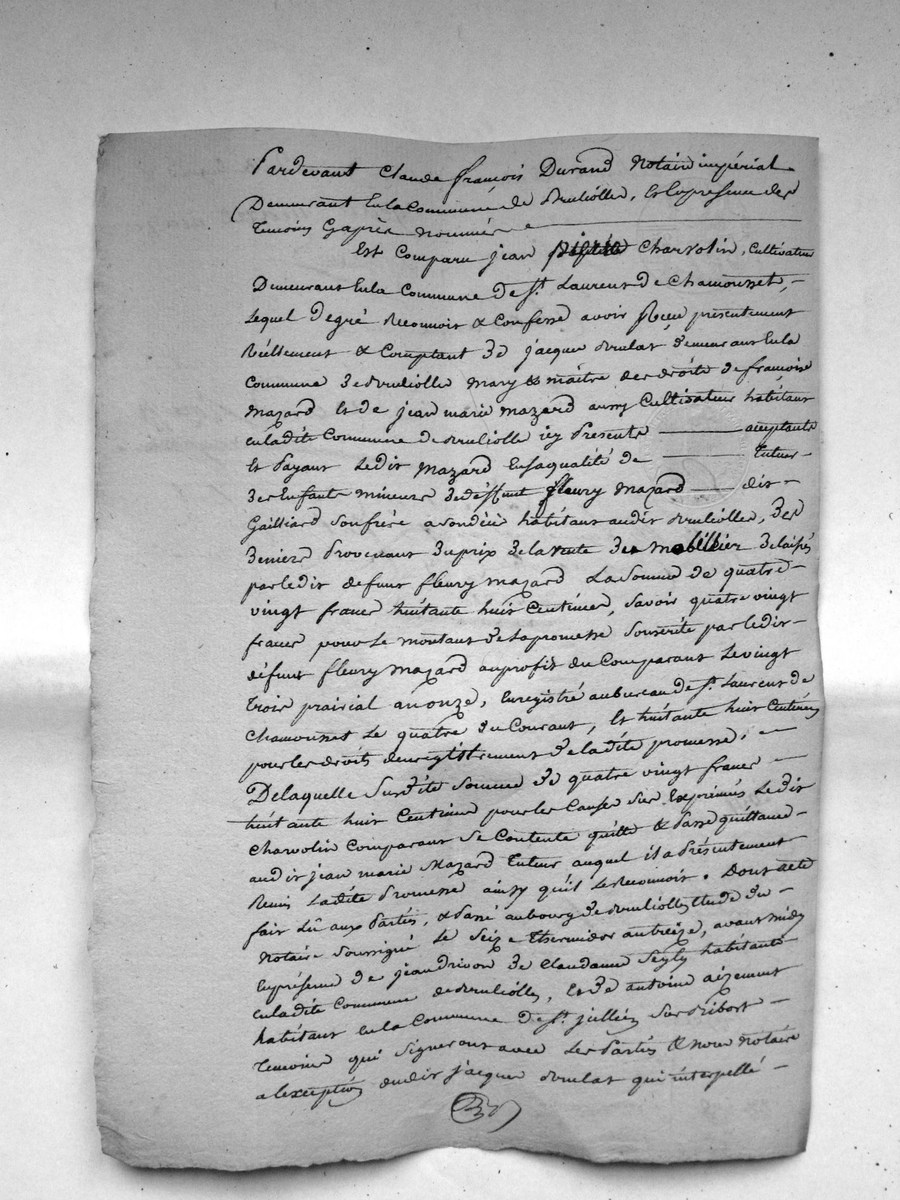 Pardevant Claude françois Durand Notaire impérial
Demeurant En la Commune de Brulliolles, Et En présence des
temoins Cy après nommés
Est Comparu jean Charvolin, Cultivateur
Demeurant En la Commune de St. Laurent de Chamousset,
Lequel De gré Reconnoit & Confesse avoir Reçu présentement
Réellement & Comptant De jacque Brulas Demeurant En la
Commune de Brulliolle mary & maître des droits de françoise
Mazard Et de jean marie Mazard aussy Cultivateur habitant
En ladite Commune de Brulliolle icy Présents acceptants
Et Payant Ledit Mazard En sa qualité de tuteur
Des Enfants mineurs De deffunt fleury Mazard dit
Gailliard son frère a son décè habitant audit Brulliolles, Des
Deniers Provenant Du prix De la vente Des Mobillier Delaissés
par ledit defunt fleury Mazard La Somme De quatre
vingt francs huitante huit Centimes, Savoir quatre vingt
francs pour Le montant De La promesse Souscrite par ledit
défunt fleury Mazard au profit du Comparant Le vingt
trois prairial an onze, Enregistré au bureau de St. Laurent de
Chamousset Le quatre Du Courant, Et huitante huit Centimes
pour les droits d'enregistrement De la dite promesse;
De laquelle Susdite Somme De quatre vingt francs
huitante huit Centimes pour les Causes Sus Exprimés Ledit
Charvolin Comparant Se Contente quitte & Passe quittance
audit jean marie Mazard tuteur auquel il a Présentement
Remis Ladite Promesse ainsy qu'il Le Reconnoit. Dont acte
fait Lû aux Parties, & Passé au bourg de Brulliolles Etude du
Notaire Soussigné Le Seize thermidor an treize, avant midy
En présence de jean Drivon De Claudanne habitants
En ladite Commune de Brulliolles, Et De antoine
habitant En la Commune De St. jullien Sur Bibost
temoins qui Signeront avec Les Parties & Nous Notaire
a l'exception dudit jacque Brulas qui interpellé